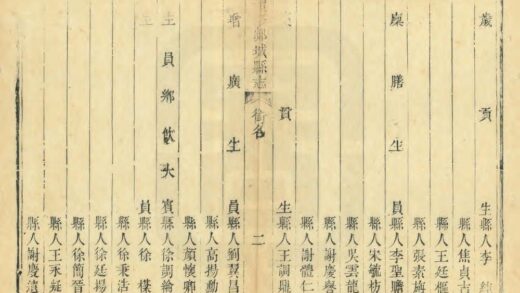 歲貢生縣人李
縣人焦貞古
縣人王廷樞
縣人張素梅
廩膳生員縣人李聖
縣人宋毓坊
縣人吳雲龍
縣人謝慶譽
縣人謝體仁
貢生縣人王訓
郯城縣志 銜名 二
增廣生員縣人劉賢昌
縣人高揚勳
縣人顏懷卿
生員鄉飲大賓縣人徐綸
生員縣人徐
縣人徐秉
縣人徐廷揚
縣人徐簡
縣人王廷
縣人謝慶